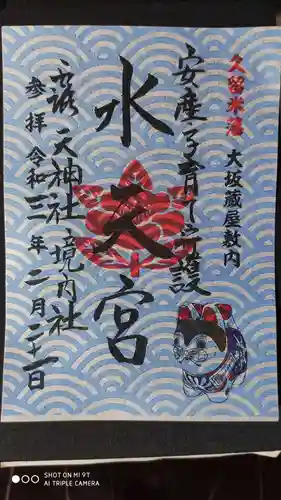 久留米藩
大坂蔵屋敷内
安産子育守護
水天宮
露天神社境内社
参拝 令和三年二月二十一日
SHOT ON MI 9T
AI TRIPLE CAMERA